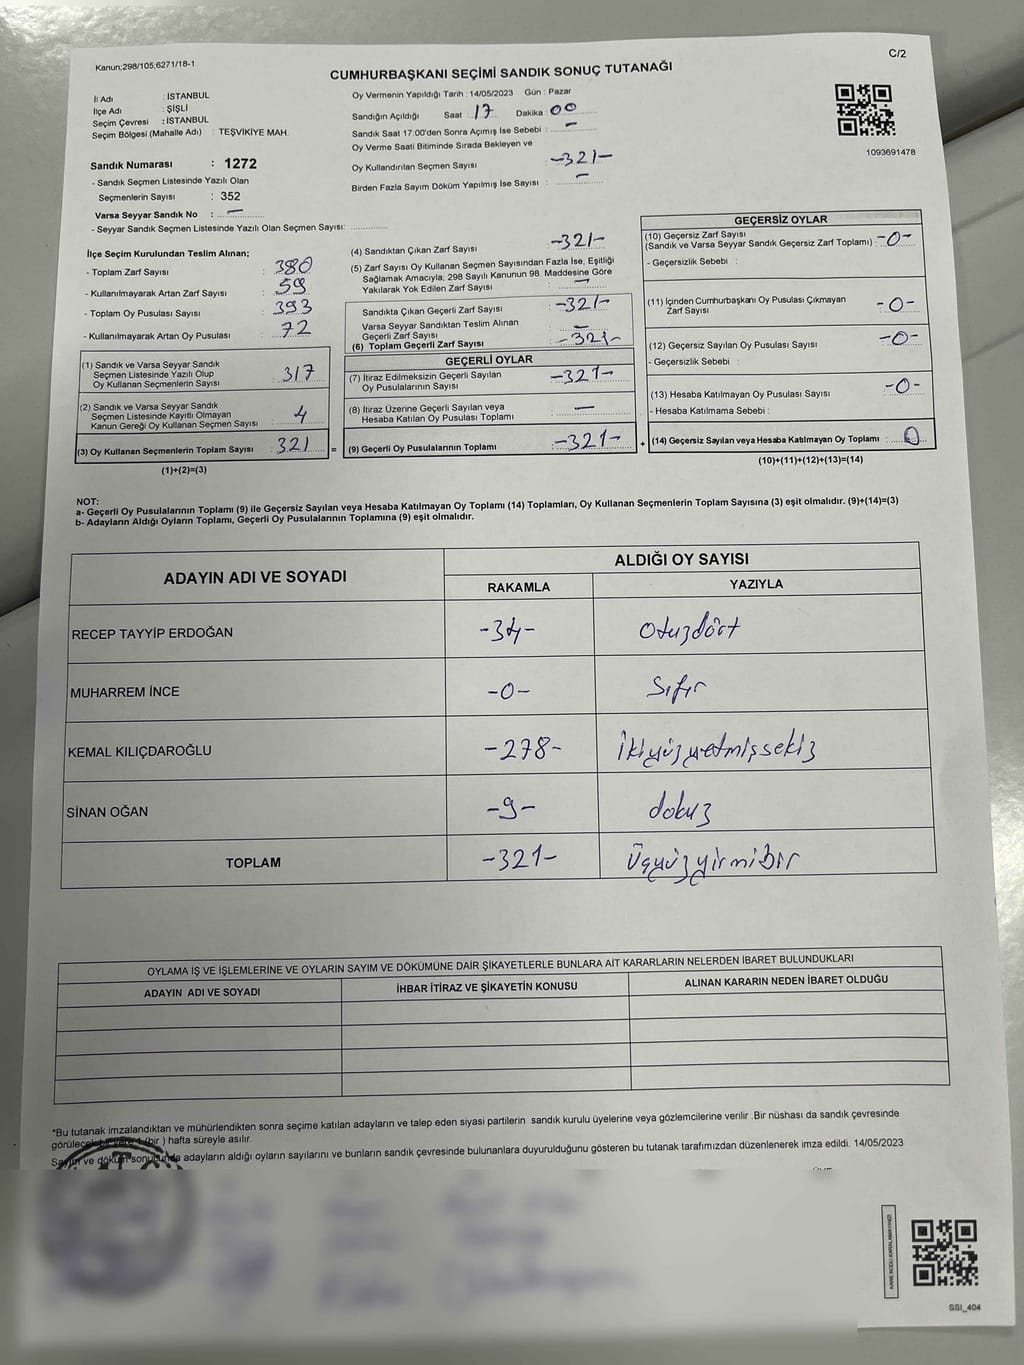 Kanun;298/105,6271/18-1
C/2
CUMHURBAŞKANI SEÇİMİ SANDIK SONUÇ TUTANAĞI
İl Adı : İSTANBUL
İlçe Adı : ŞİŞLİ
Seçim Çevresi : İSTANBUL
Seçim Bölgesi (Mahalle Adı) : TEŞVİKİYE MAH.
Sandık Numarası : 1272
- Sandık Seçmen Listesinde Yazılı Olan
Seçmenlerin Sayısı : 352
Varsa Seyyar Sandık No : —
- Seyyar Sandık Seçmen Listesinde Yazılı Olan Seçmen Sayısı:
Oy Vermenin Yapıldığı Tarih : 14/05/2023 Gün : Pazar
Sandığın Açıldığı Saat : 17 Dakika : 00
Sandık Saat 17:00'den Sonra Açımış İse Sebebi : —
Oy Verme Saati Bitiminde Sırada Bekleyen ve
Oy Kullandırılan Seçmen Sayısı : -321-
Birden Fazla Sayım Döküm Yapılmış İse Sayısı : —
1093691478
İlçe Seçim Kurulundan Teslim Alınan;
- Toplam Zarf Sayısı : 380
- Kullanılmayarak Artan Zarf Sayısı : 59
- Toplam Oy Pusulası Sayısı : 393
- Kullanılmayarak Artan Oy Pusulası : 72
(1) Sandık ve Varsa Seyyar Sandık
Seçmen Listesinde Yazılı Olup
Oy Kullanan Seçmenlerin Sayısı : 317
(2) Sandık ve Varsa Seyyar Sandık
Seçmen Listesinde Kayıtlı Olmayan
Kanun Gereği Oy Kullanan Seçmen Sayısı : 4
(3) Oy Kullanan Seçmenlerin Toplam Sayısı : 321 =
(1)+(2)=(3)
(4) Sandıktan Çıkan Zarf Sayısı : -321-
(5) Zarf Sayısı Oy Kullanan Seçmen Sayısından Fazla İse, Eşitliği
Sağlamak Amacıyla; 298 Sayılı Kanunun 98. Maddesine Göre
Yakılarak Yok Edilen Zarf Sayısı : —
Sandıkta Çıkan Geçerli Zarf Sayısı : -321-
Varsa Seyyar Sandıktan Teslim Alınan
Geçerli Zarf Sayısı : —
(6) Toplam Geçerli Zarf Sayısı : -321-
GEÇERLİ OYLAR
(7) İtiraz Edilmeksizin Geçerli Sayılan
Oy Pusulalarının Sayısı : -321-
(8) İtiraz Üzerine Geçerli Sayılan veya
Hesaba Katılan Oy Pusulası Toplamı : —
(9) Geçerli Oy Pusulalarının Toplamı : -321- +
GEÇERSİZ OYLAR
(10) Geçersiz Zarf Sayısı
(Sandık ve Varsa Seyyar Sandık Geçersiz Zarf Toplamı) : -0-
- Geçersizlik Sebebi :
(11) İçinden Cumhurbaşkanı Oy Pusulası Çıkmayan
Zarf Sayısı : -0-
(12) Geçersiz Sayılan Oy Pusulası Sayısı : -0-
- Geçersizlik Sebebi :
(13) Hesaba Katılmayan Oy Pusulası Sayısı : -0-
- Hesaba Katılmama Sebebi :
(14) Geçersiz Sayılan veya Hesaba Katılmayan Oy Toplamı : 0
(10)+(11)+(12)+(13)=(14)
NOT:
a- Geçerli Oy Pusulalarının Toplamı (9) ile Geçersiz Sayılan veya Hesaba Katılmayan Oy Toplamı (14) Toplamları, Oy Kullanan Seçmenlerin Toplam Sayısına (3) eşit olmalıdır. (9)+(14)=(3)
b- Adayların Aldığı Oyların Toplamı, Geçerli Oy Pusulalarının Toplamına (9) eşit olmalıdır.
ADAYIN ADI VE SOYADI ALDIĞI OY SAYISI
RAKAMLA YAZIYLA
RECEP TAYYİP ERDOĞAN -34- Otuzdört
MUHARREM İNCE -0- Sıfır
KEMAL KILIÇDAROĞLU -278- İkiyüzyetmişsekiz
SİNAN OĞAN -9- dokuz
TOPLAM -321- Üçyüzyirmibir
OYLAMA İŞ VE İŞLEMLERİNE VE OYLARIN SAYIM VE DÖKÜMÜNE DAİR ŞİKAYETLERLE BUNLARA AİT KARARLARIN NELERDEN İBARET BULUNDUKLARI
ADAYIN ADI VE SOYADI İHBAR İTİRAZ VE ŞİKAYETİN KONUSU ALINAN KARARIN NEDEN İBARET OLDUĞU
*Bu tutanak imzalandıktan ve mühürlendikten sonra seçime katılan adayların ve talep eden siyasi partilerin sandık kurulu üyelerine veya gözlemcilerine verilir .Bir nüshası da sandık çevresinde
(bir ) hafta süreyle asılır.
Sayım ve döküm sonucunda adayların aldığı oyların sayılarını ve bunların sandık çevresinde bulunanlara duyurulduğunu gösteren bu tutanak tarafımızdan düzenlenerek imza edildi. 14/05/2023
SSI_404